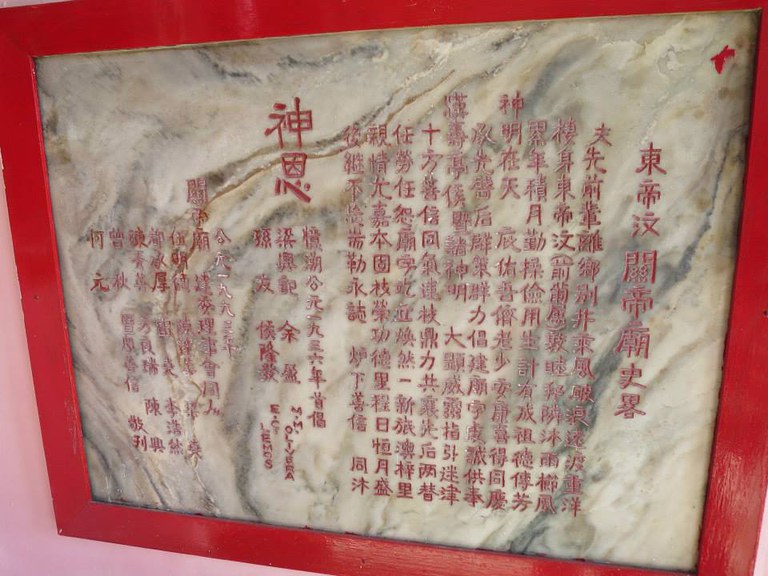 東帝汶關帝廟史畧
夫先前輩離鄉別井乘風破浪遠渡重洋
棲身東帝汶(前葡屬)敦睦鄰沐雨櫛風
累年積月勤操儉用生計有成祖德傳芳
神明在天庇佑吾儕老少安康喜得同慶
承先啓后群策群力倡建廟宇虔誠供奉
漢壽亭侯暨諸神明大顯威靈指引迷津
十方善信同氣連枝鼎力共襄先后兩替
任勞任怨廟宇屹立煥然一新旅澳梓里
親情尤嘉本固枝榮功德里程日恒月盛
後繼不 耑勒永誌爐下善信同沐
神恩
憶溯公元一九三六年首倡
梁興記 余盈
孫友 侯隆
M.M. OLIVERA
E.C. LEMOS
公元一九九三年
關帝廟 理事會同人
厚 東 李浩然
方良瑞 陳興
曾秋 暨 善信 敬刊
何元